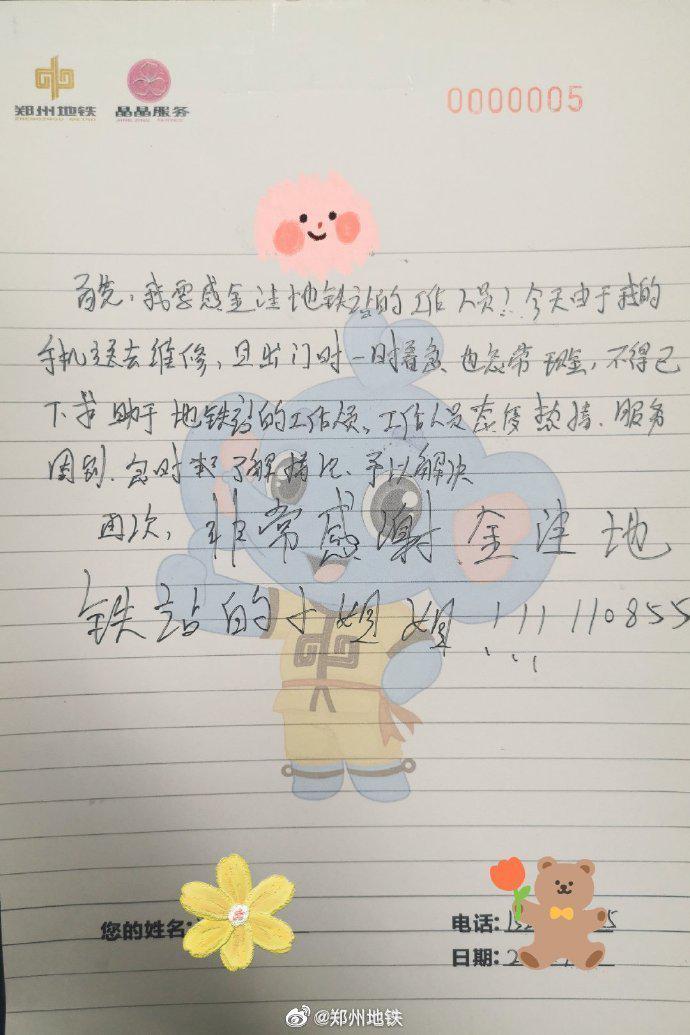 郑州地铁
ZHENGZHOU METRO
晶晶服务
0000005
首先,我要感金洼地铁站的工作人员!今天由于我的
手机送去维修,且出门时一时着急也忘带现金,不得已
下求助于地铁站的工作人员、工作人员态度热情、服务
周到、及时地了解情况、予以解决
再次,非常感谢金洼地
铁站的小姐姐!!!110855
您的姓名:
电话:
日期:2
@郑州地铁